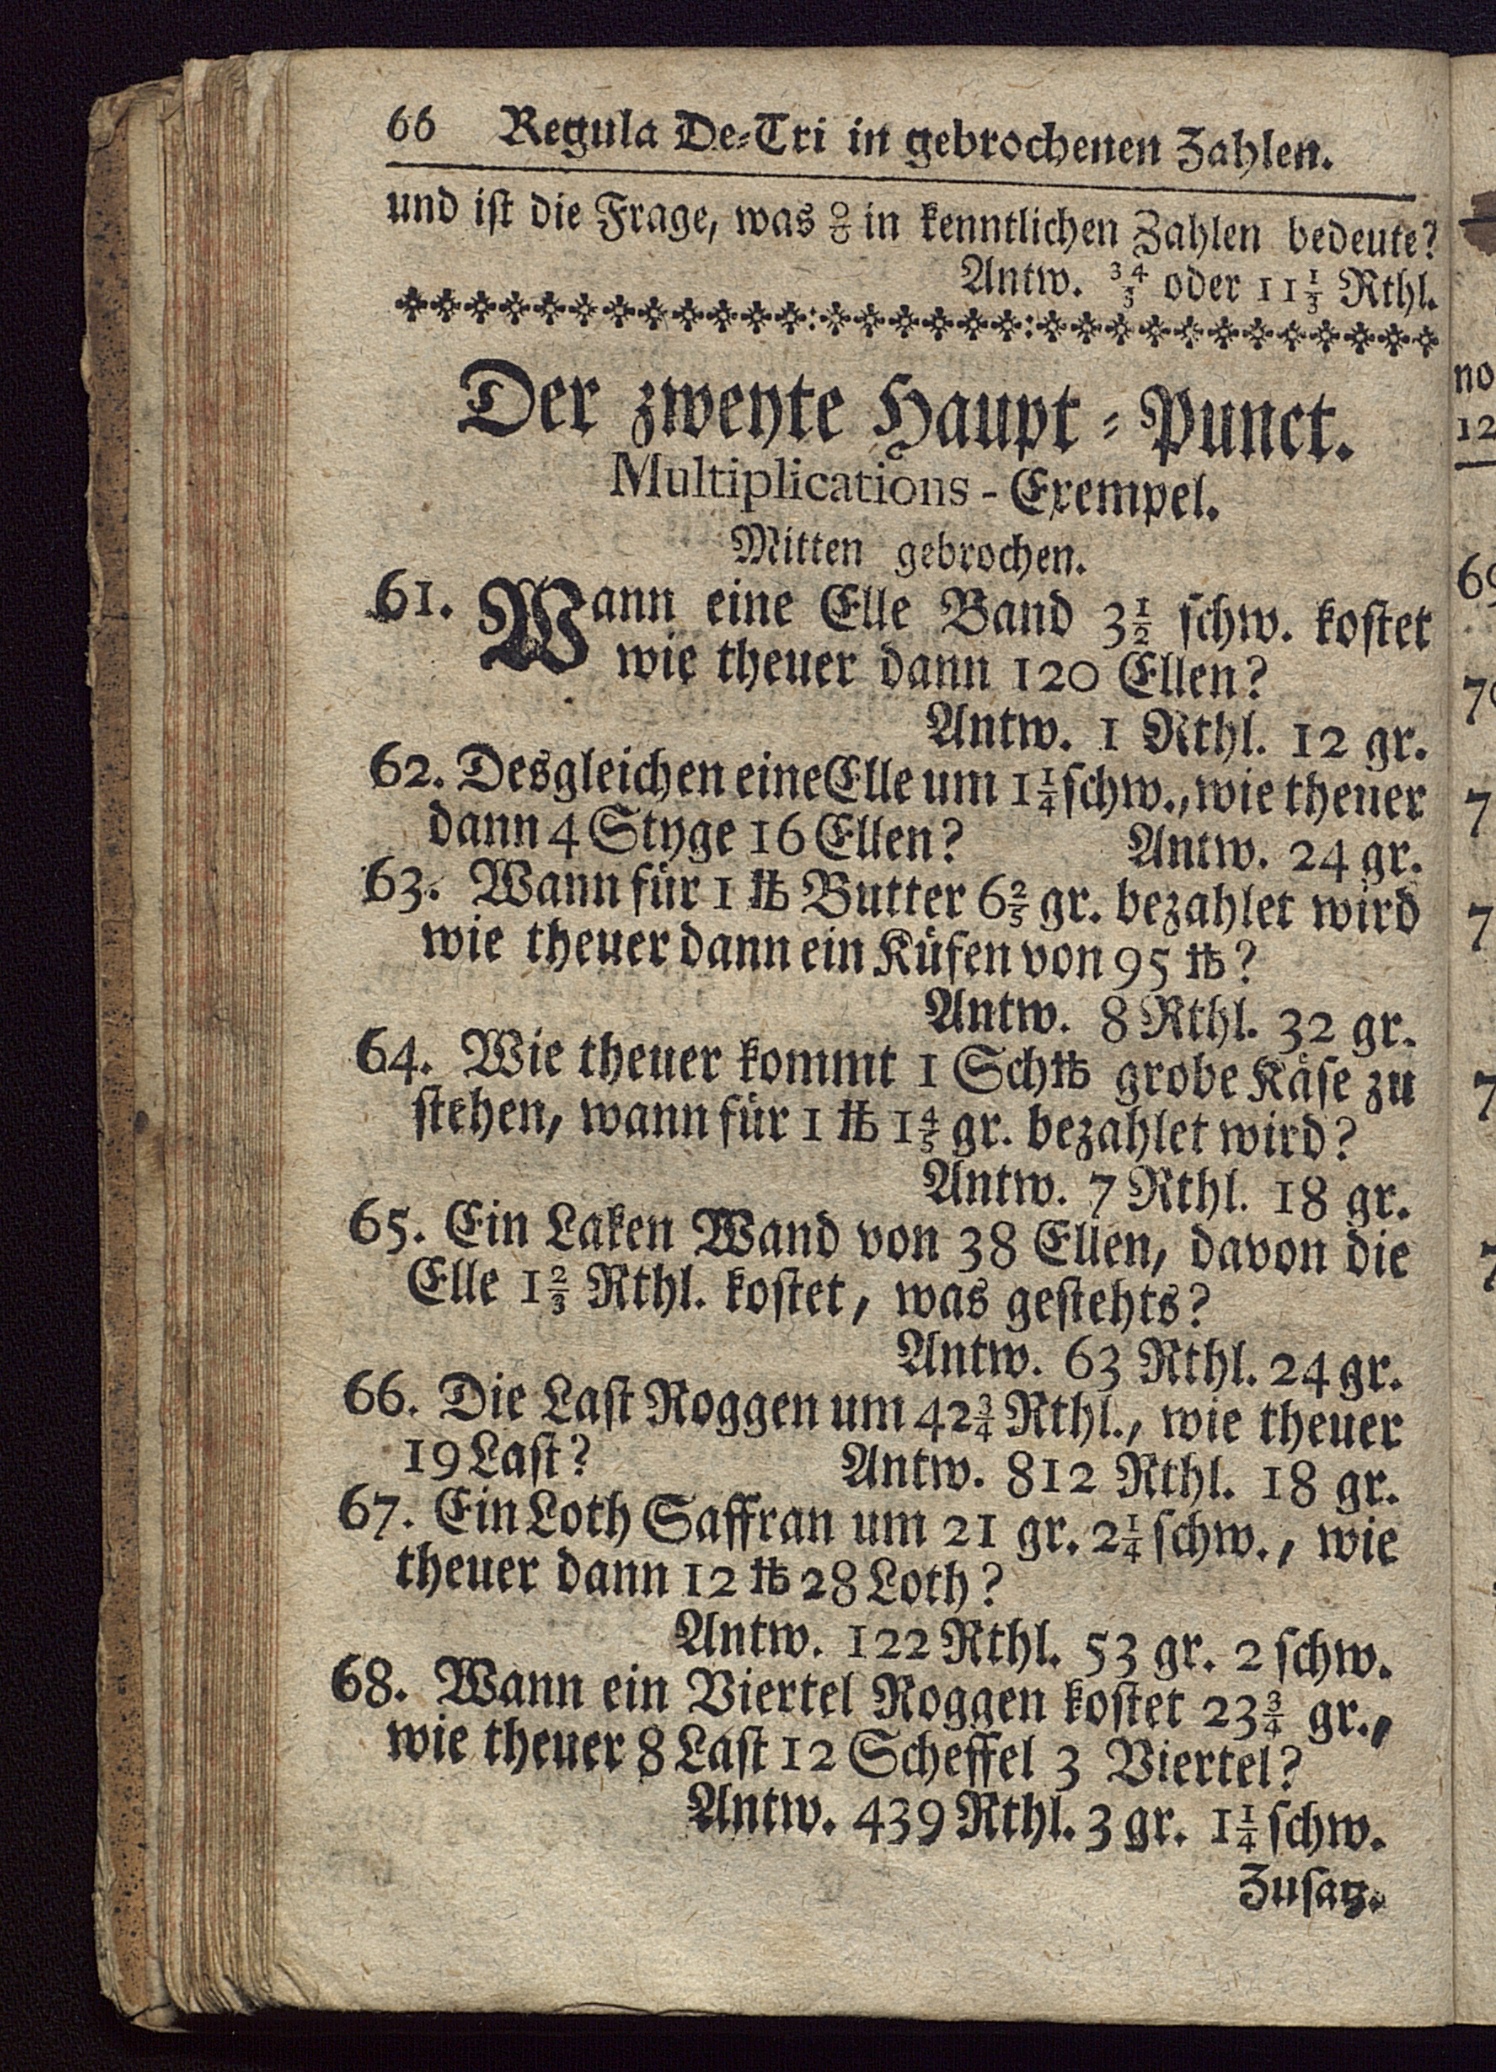 66 Regula De-Tri in gebrochenen Zahlen.
und ist die Frage, was 0/0 in kenntlichen Zahlen bedeute?
Antw. 34/3 oder 11 1/3 Rthl.
Der zweyte Haupt-Punct.
Multiplications-Exempel.
Mitten gebrochen.
61. Wann eine Elle Band 3 1/2 schw. kostet
wie theuer dann 120 Ellen?
Antw. 1 Rthl. 12 gr.
62. Desgleichen eine Elle um 1 1/4 schw., wie theuer
dann 4 Styge 16 Ellen? Antw. 24 gr.
63. Wann für 1 ℔ Butter 6 2/5 gr. bezahlet wird
wie theuer dann ein Küfen von 95 ℔?
Antw. 8 Rthl. 32 gr.
64. Wie theuer kommt 1 Sch℔ grobe Käse zu
stehen, wann für 1 ℔ 1 4/5 gr. bezahlet wird?
Antw. 7 Rthl. 18 gr.
65. Ein Laken Wand von 38 Ellen, davon die
Elle 1 2/3 Rthl. kostet, was gestehts?
Antw. 63 Rthl. 24 gr.
66. Die Last Roggen um 42 3/4 Rthl., wie theuer
19 Last? Antw. 812 Rthl. 18 gr.
67. Ein Loth Saffran um 21 gr. 2 1/4 schw., wie
theuer dann 12 ℔ 28 Loth?
Antw. 122 Rthl. 53 gr. 2 schw.
68. Wann ein Viertel Roggen kostet 23 3/4 gr.,
wie theuer 8 Last 12 Scheffel 3 Viertel?
Antw. 439 Rthl. 3 gr. 1 1/4 schw.
Zusatz.